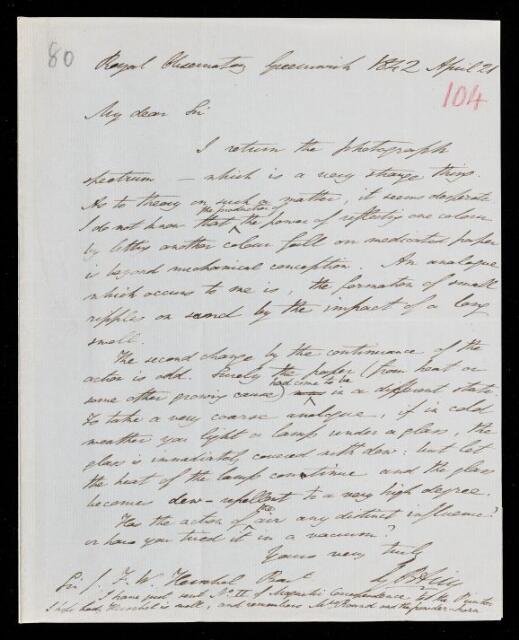 80
Royal Observatory Greenwich 1842 April 21
104
My dear Sir
I return the photograph
spectrum — which is a very strange thing.
As to theory on such a matter, it seems desperate
the production of
I do not know that the power of reflecting one colour
by letting another colour fall on medicated paper
is beyond mechanical conception. An analogue
which occurs to me is, the formation of small
ripples on sand by the impact of a long
swell.
The second change by the continuance of the
action is odd. Surely the paper (from heat or
had come to be
some other growing cause) was in a different state.
To take a very coarse analogue, if in cold
weather you light a lamp under a glass, the
glass is immediately covered with dew: but let
the heat of the lamp continue and the glass
becomes dew-repellent to a very high degree.
the
Has the action of air any distinct influence?
or have you tried it in a vacuum?
Yours very truly
G B Airy
Sir J. F. W. Herschel Bart
I have just sent No. II of Magnetic Correspondence to the Printer
I hope Lady Herschel is well, and remembers Mr and the powder-horn